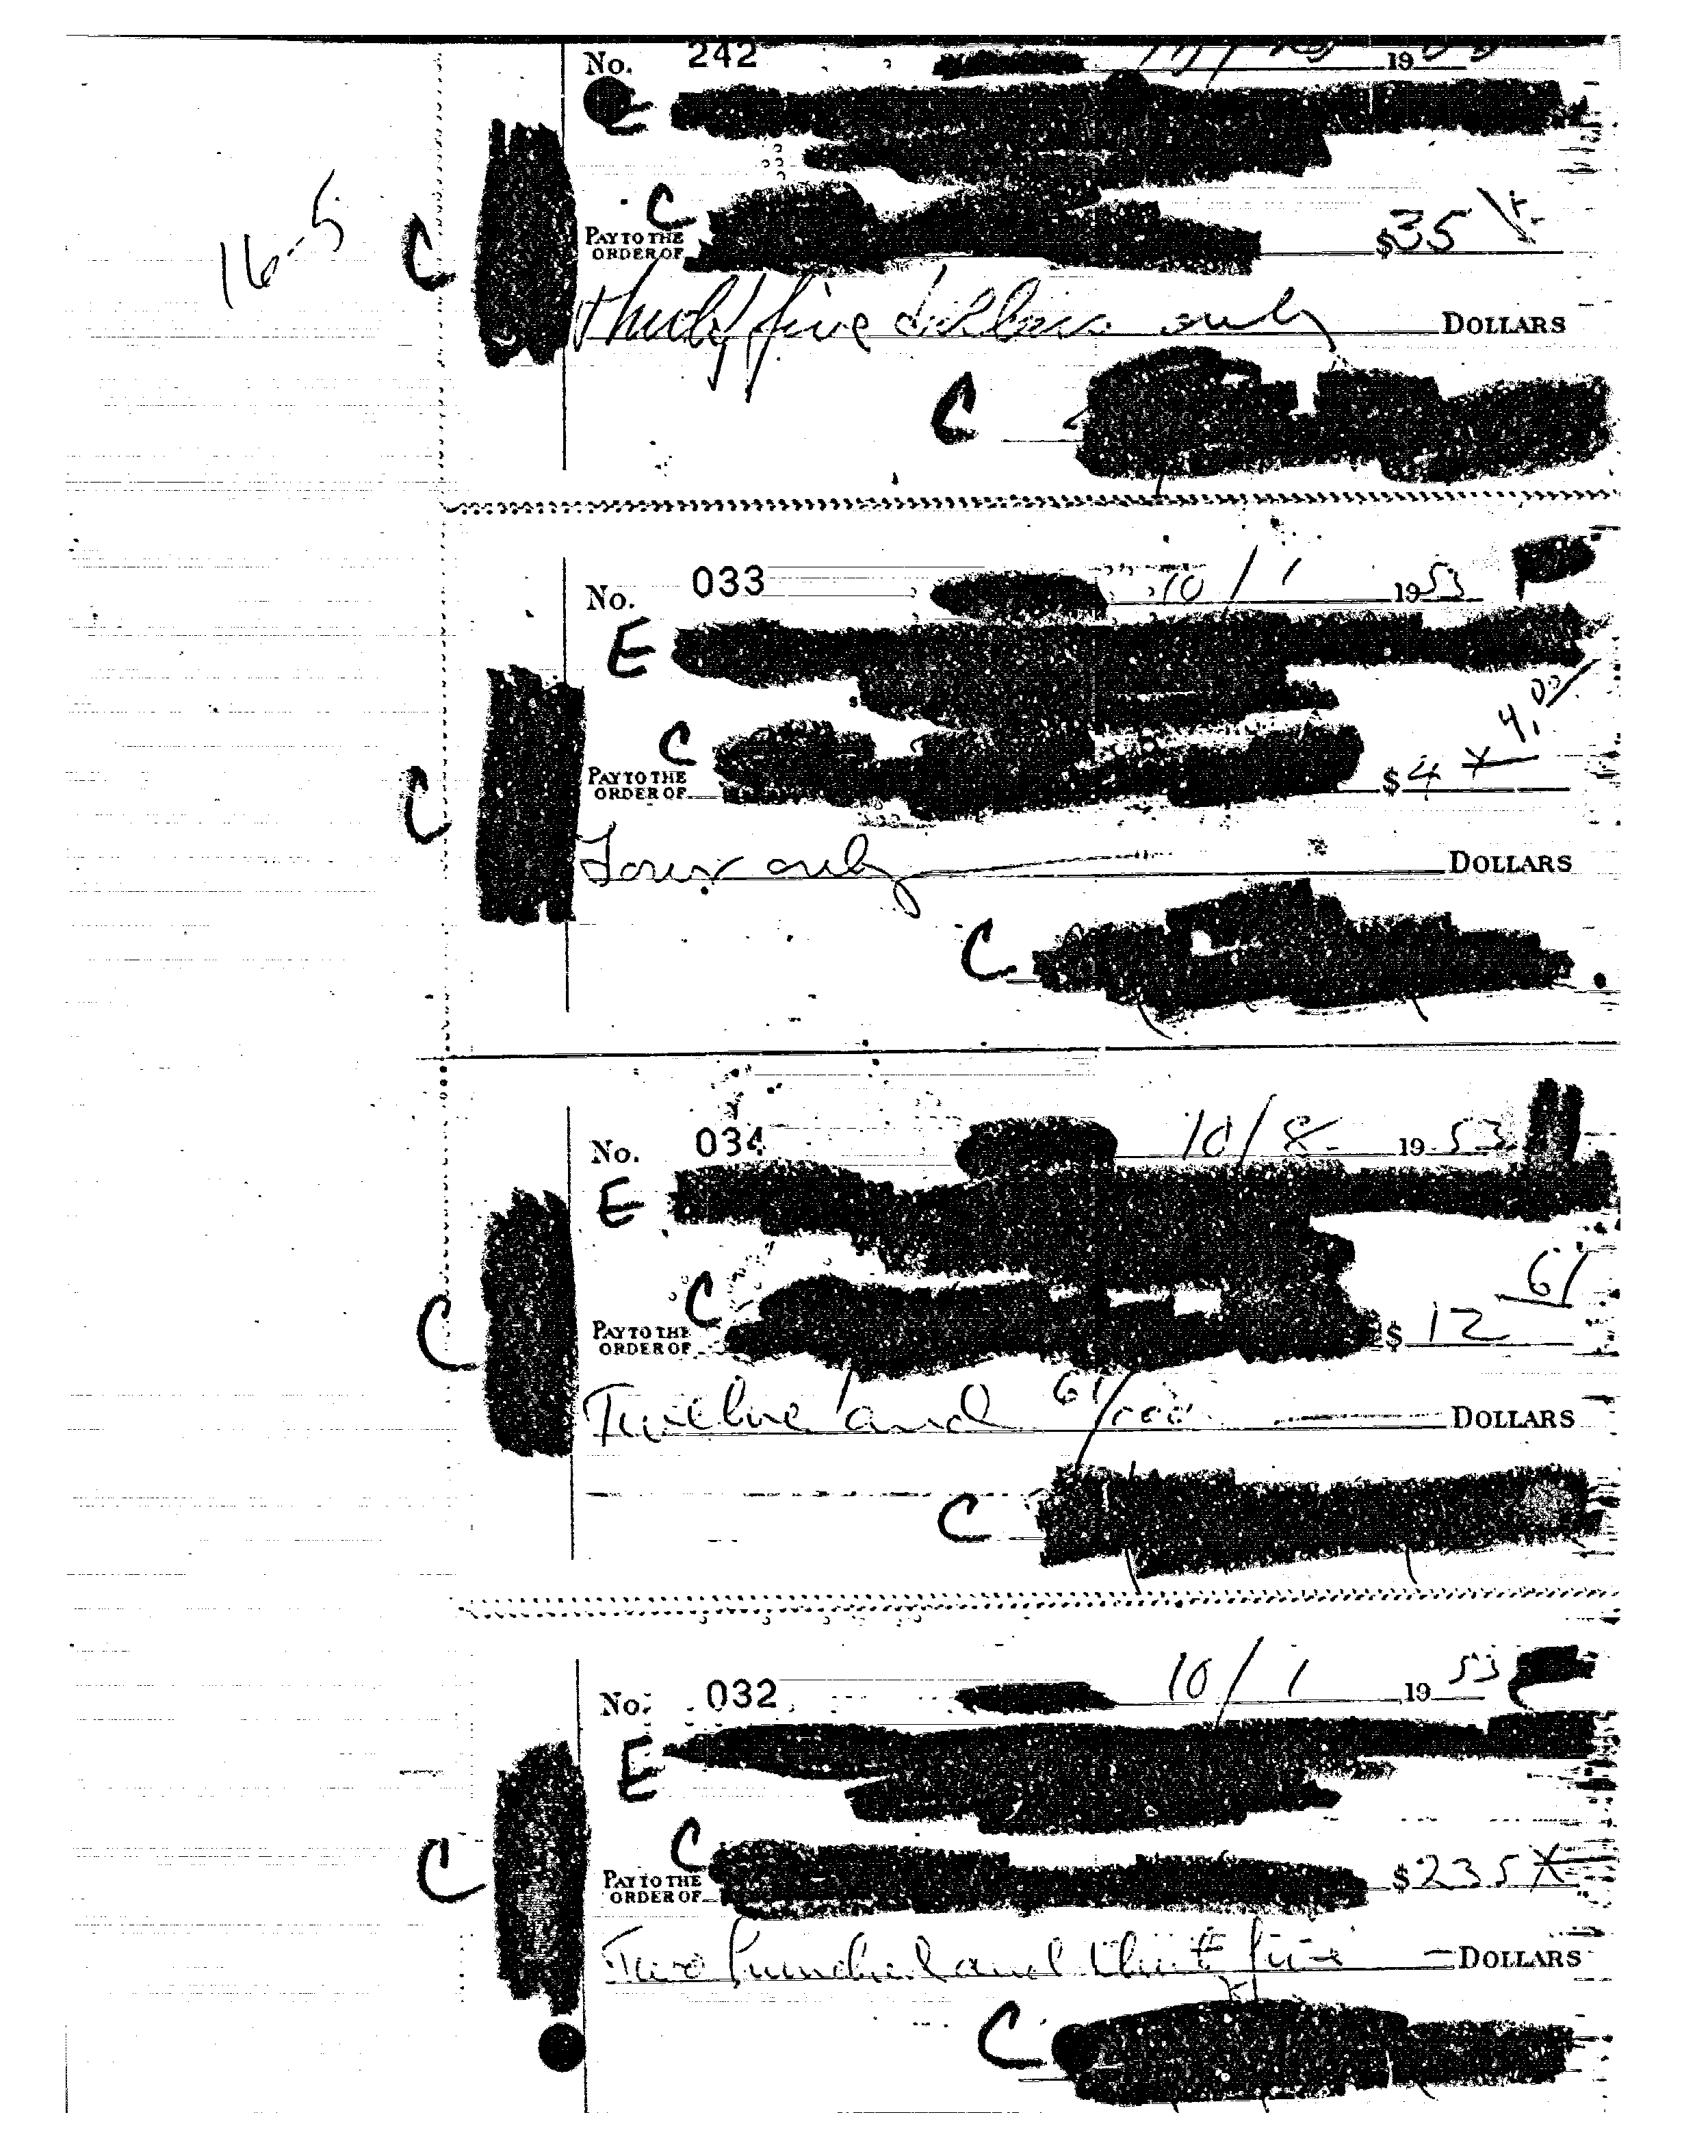 No. 242 19
E
16-5
C
C
PAY TO THE
ORDER OF $35
Thirty five dollars only DOLLARS
C
No. 033 10/1 1953
E
4.00
C
C
PAY TO THE
ORDER OF $4
Four only DOLLARS
C
No. 034 10/8 1953
E
61
C
C
PAY TO THE
ORDER OF $12
Twelve and 61/100 DOLLARS
C
No. 032 10/1 1953
E
C
C
PAY TO THE
ORDER OF $235
Two hundred and thirty five DOLLARS
C